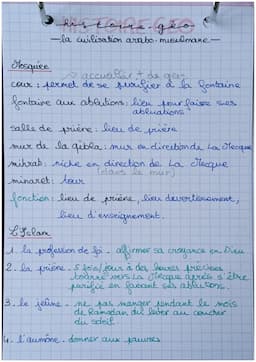 histoire-géo
—la civilisation arabo-musulmane—
Mosquée
accueillir + de gens
cour : permet de se purifier à la fontaine
fontaine aux ablutions : lieu pour faire ses
ablutions
salle de prière : lieu de prière
mur de la qibla : mur en direction de La Mecque
mihrab : niche en direction de La Mecque
(dans le mur)
minaret : tour
fonction : lieu de prière, lieu d'
lieu d'enseignement.
L'Islam
1. la profession de foi - affirmer sa croyance en Dieu
2. la prière - 5 fois/jour à des heures précises
tourné vers La Mecque après s'être
purifié en faisant ses ablutions.
3. le jeûne - ne pas manger pendant le mois
de ramadan du lever au coucher
du soleil
4. l'aumône - donner aux pauvres